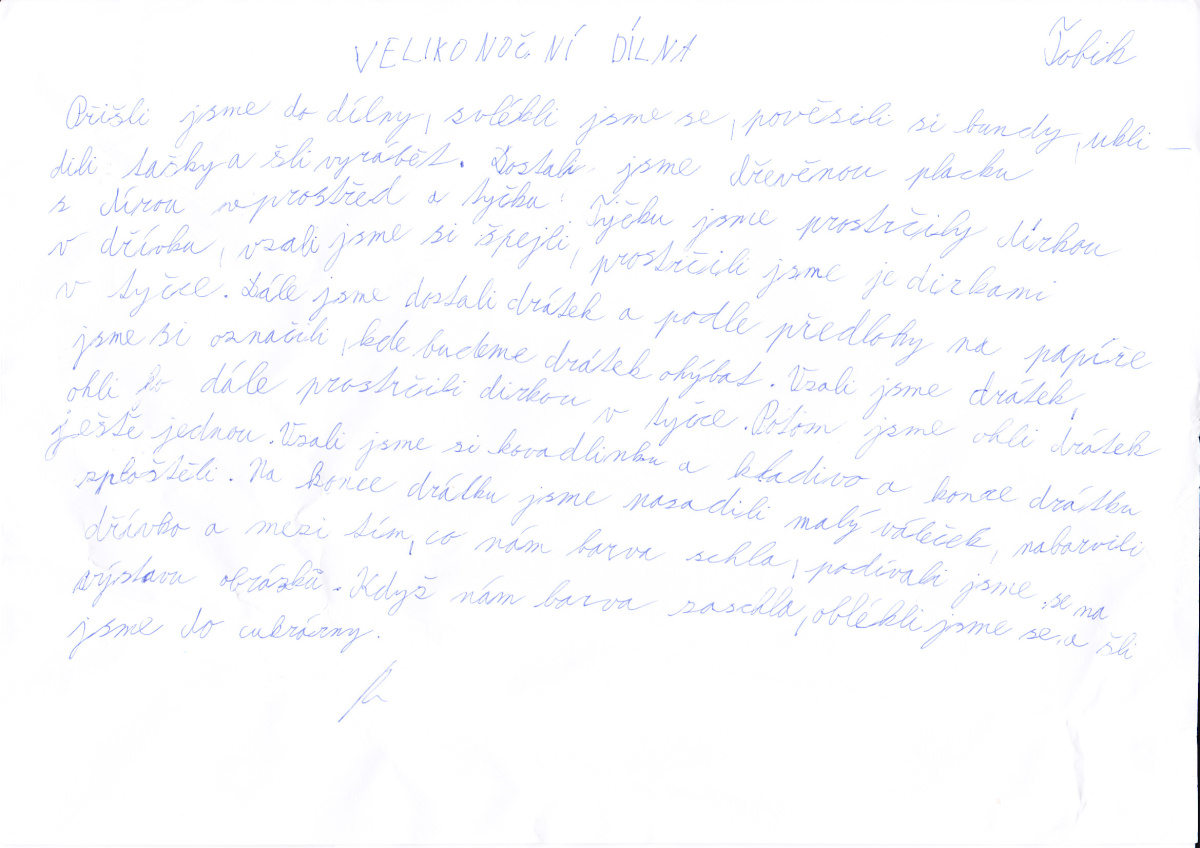 VELIKONOČNÍ DÍLNA Tobik
Přišli jsme do dílny, svlékli jsme se, pověsili si bundy, ukli-
dili tašky a šli vyrábět. Dostali jsme dřevěnou placku
s dírou uprostřed a tyčku. Tyčku jsme prostrčily dírkou
v dřívku, vzali jsme si špejli, prostrčili jsme je dirkami
v tyčce. Dále jsme dostali drátek a podle předlohy na papíře
jsme si označili, kde budeme drátek ohýbat. Vzali jsme drátek,
ohli ho dále prostrčili dirkou v tyčce. Potom jsme ohli drátek
ještě jednou. Vzali jsme si kovadlinku a kladivo a konce drátku
zploštěli. Na konce drátku jsme nasadili malý váleček, nabarvili
dřívko a mezi tím, co nám barva schla, podívali jsme se na
výstavu obrázků. Když nám barva zaschla, oblékli jsme se a šli
jsme do cukrárny.